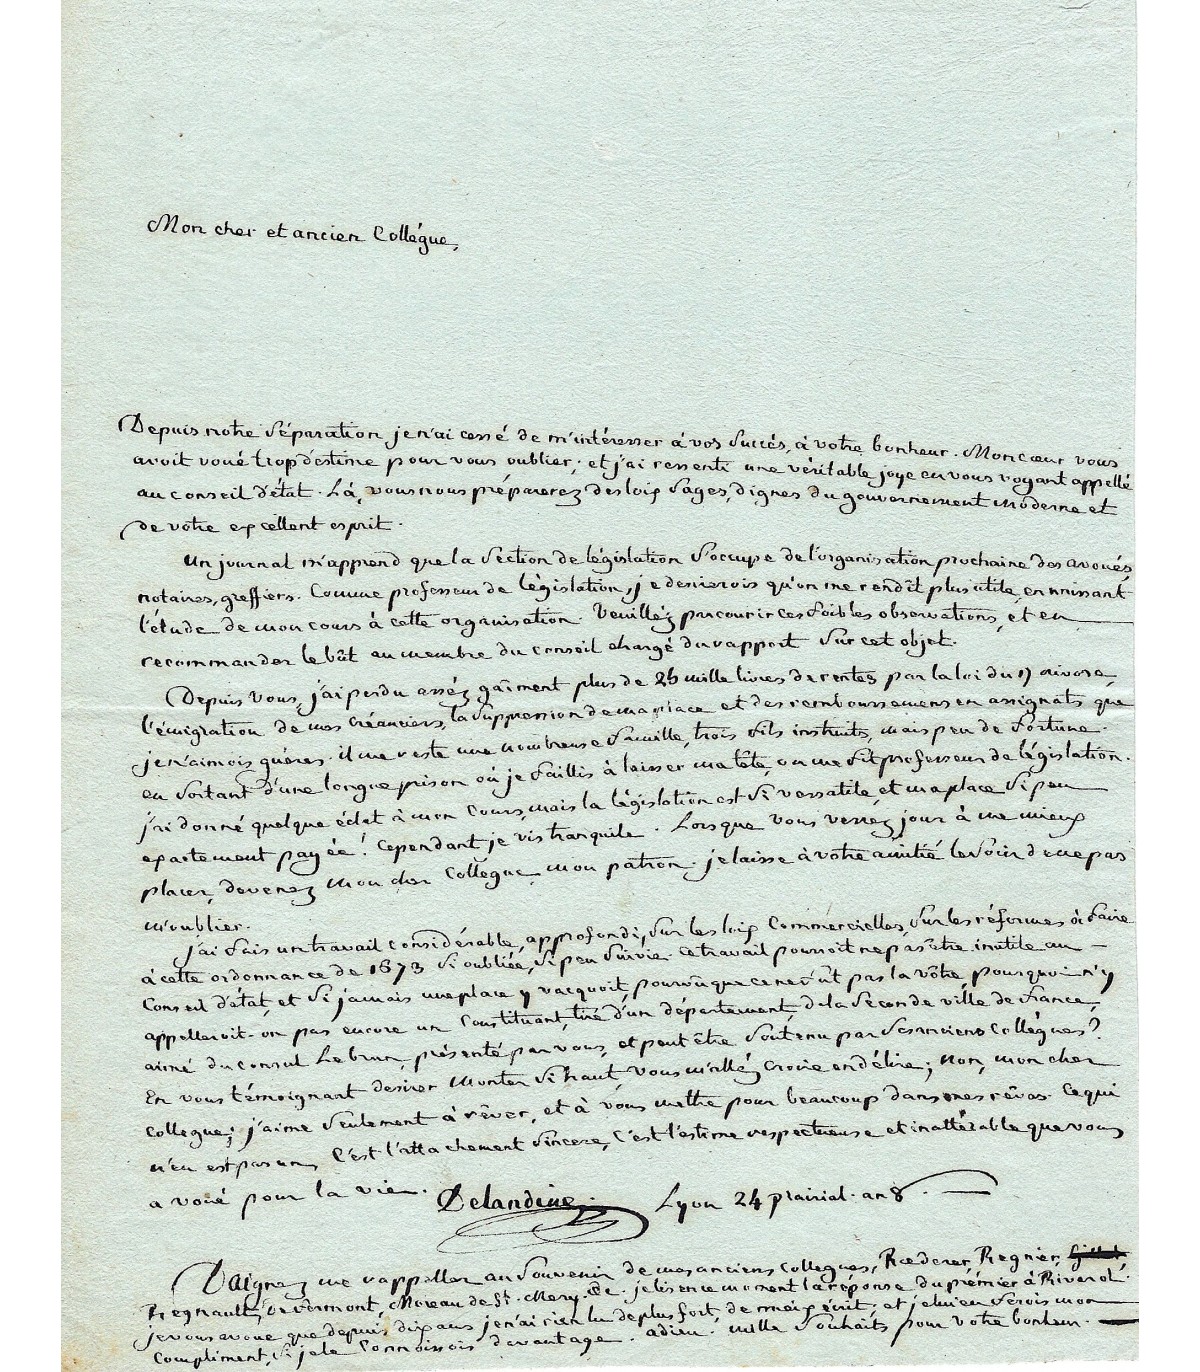 Mon cher et ancien Collégue,
Depuis notre séparation je n'ai cessé de m'intéresser à vos succès, à votre bonheur. Mon cœur vous
avoit voué trop d'estime pour vous oublier; et j'ai ressenti une véritable joye en vous voyant appellé
au conseil d'état. Là, vous nous préparerez des loix sages, dignes du gouvernement moderne et
de votre excellent esprit.
Un journal m'apprend que la section de législation s'occupe de l'organisation prochaine des avoués,
notaires, greffiers. Comme professeur de législation, je desirerois qu'on me rendît plus utile, en unissant
l'étude de mon cours à cette organisation. Veuillez parcourir ces foibles observations, et en
recommander le bût au membre du conseil chargé du rapport sur cet objet.
Depuis vous, j'ai perdu assez gaîment plus de 25 mille livres de rentes par la loi du 17 nivose,
l'émigration de mes créanciers, la suppression de ma place et des remboursemens en assignats que
je n'aimois guéres. il me reste une nombreuse famille, trois fils instruits, mais peu de fortune.
en sortant d'une longue prison où je faillis à laisser ma tête, on me fit professeur de législation.
j'ai donné quelque éclat à mon cours, mais la législation est si versatile, et ma place si peu
exactement payée! Cependant je vis tranquile. Lorsque vous verrez jour à me mieux
placer, devenez mon cher Collégue, mon patron. je laisse à votre amitié le soin de ne pas
m'oublier.
j'ai fais un travail considérable, approfondi, sur les loix Commercielles, sur les réformes à faire
à cette ordonnance de 1673 si oubliée, si peu suivie. ce travail pourroit ne pas être inutile au
Conseil d'état, et si jamais une place y vacquoit, pourvû que ce ne fût pas la vôtre, pourquoi n'y
appelleroit-on pas encore un Constituant, tiré d'un département, de la seconde ville de France,
aimé du consul Lebrun, présenté par vous, et peut être soutenu par ses anciens Collégues?
En vous témoignant desirer monter si haut, vous m'allez croire en délire; non, mon cher
Collegue; j'aime seulement à rêver, et à vous mettre pour beaucoup dans mes rêves. Ce qui
n'en est pas un, C'est l'attachement sincere, C'est l'estime respectueuse et inaltérable que vous
a voué pour la vie.
Delandine. Lyon 24 prairial an 8.
Daignez me rappeller au souvenir de mes anciens collegues, Rœderer, Regnier,
Regnault, Devermont, Moreau de St. Mery. &c. je lis en ce moment la réponse du prémier à Rivarol.
je vous avoue que depuis dix ans je n'ai rien lu de plus fort, de mieux écrit; et je lui en ferois mon
Compliment, si je le Connoissois davantage. adieu. mille souhaits pour votre bonheur.